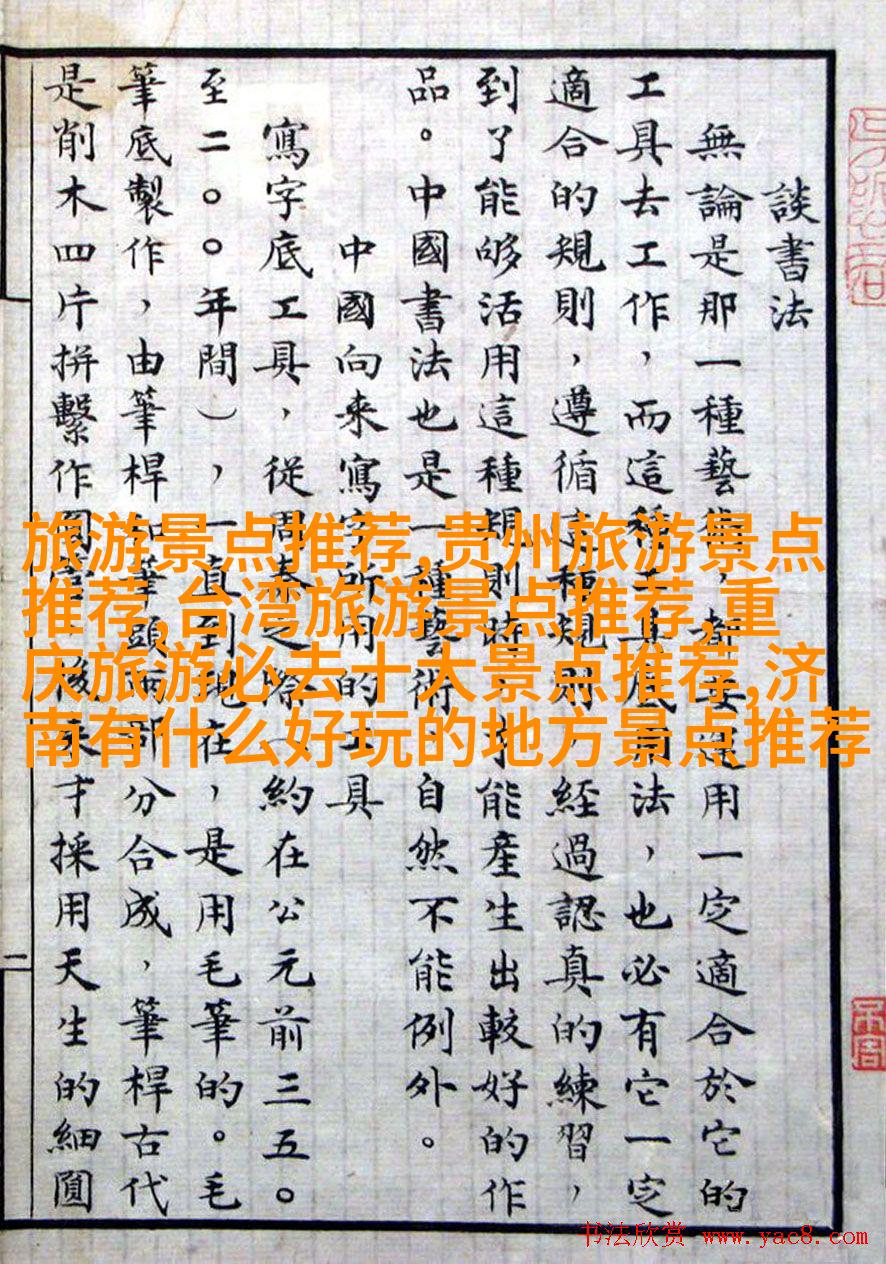 談書法
無論是那一種藝術，都要運用一定適合於它的
工具去工作，而這種工具底用法，也必有它一定
適合的規則，遵循這種規則，經過認真的練習，
到了能够活用這種規則時，才能產生出較好的作
品。中國書法也是一種藝術，自然不能例外。
中國向来寫字所用的工具
寫字底工具，從周秦之際（約在公元前三五〇
至二〇〇年間），一直到現在，是用毛筆的。毛
筆底製作，由筆桿和筆頭兩部分合成，筆桿古代
是削木四片拼繫作圓管，後来才採用天生的細圓
二
旅游景点推荐,贵州旅游景点
推荐,台湾旅游景点推荐,重
庆旅游必去十大景点推荐,济
南有什么好玩的地方景点推荐
书法欣赏 www.yac8.com